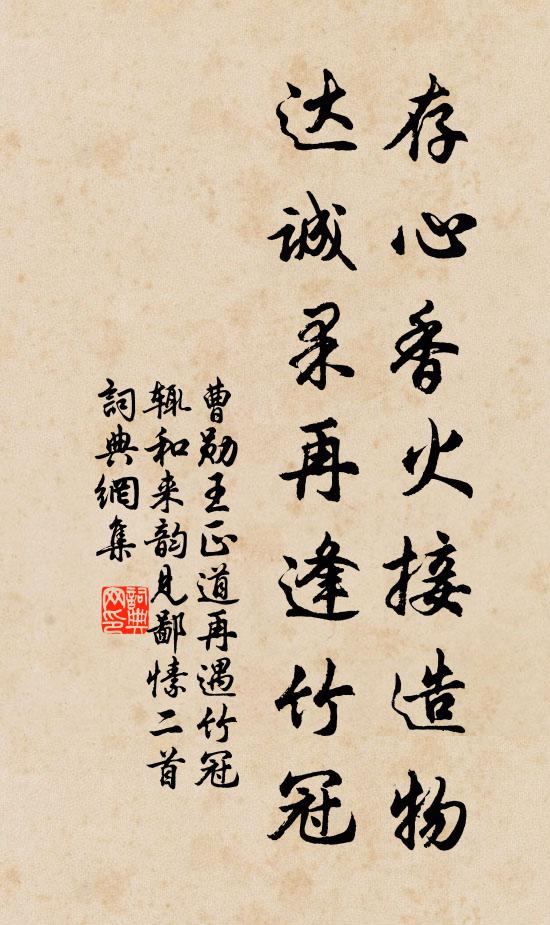 存心香火接造物
达诚果再逢竹冠
曹勋王正道再遇竹冠
辄和来韵见鄙愫二首
詞典網集
詞典网印